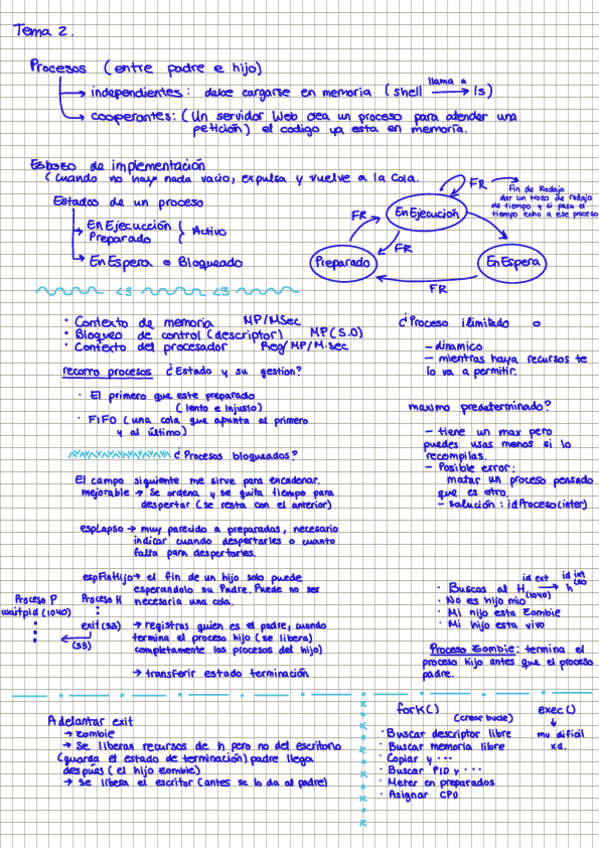 Tema 2.
Procesos (entre padre e hijo)
independientes: debe cargarse en memoria (shell llama a ls)
cooperantes: (Un servidor Web crea un proceso para atender una
petición) el codigo ya esta en memoria.
Esbozo de implementación
(Cuando no hay nada vacío, expulsa y vuelve a la Cola.
Estados de un proceso
EnEjecucción
Preparado
Activo
EnEspera o Bloqueado
FR
Fin de Rodaja
dar un trozo de rodaja
de tiempo y si pasa el
tiempo echo a ese proceso
EnEjecucion
FR
FR
Preparado
EnEspera
FR
<3 <3
· Contexto de memoria MP/MSec
· Bloqueo de control (descriptor) MP(S.O)
· Contexto del procesador Reg/MP/M.sec
recorro procesos ¿Estado y su gestion?
· El primero que este preparado
(lento e injusto)
· FIFO (una cola que apunta al primero
y al último)
¿Procesos bloqueados?
El campo siguiente me sirve para encadenar.
mejorable → Se ordena y se quita tiempo para
despertar (se resta con el anterior)
espLapso → muy parecido a preparados, necesario
indicar cuando despertarles o cuanto
falta para despertarles.
espFinHijo → el fin de un hijo solo puede
esperandolo su Padre. Puede no ser
necesaria una cola.
Proceso P Proceso H
waitpid(1040)
exit(33)
(33)
→ registras quien es el padre, cuando
termina el proceso hijo (se libera)
completamente los procesos del hijo)
→ transferir estado terminación
¿Proceso ilimitado o
- dinamico
- mientras haya recursos te
lo va a permitir.
maximo predeterminado?
- tiene un max pero
puedes usas menos si lo
recompilas.
- Posible error:
matar un proceso pensado
que es otro.
- solución: idProceso(inter)
id ext id int
(so
· Buscas al H (1040) → h
· No es hijo mio
· Mi hijo esta Zombie
· Mi hijo esta vivo
Proceso Zombie: termina el
proceso hijo antes que el proceso
padre.
Adelantar exit
→ Zombie
→ Se liberan recursos de h pero no del escritorio
(guarda el estado de terminación) padre llega
después (el hijo zombie)
→ Se libera el escritor (antes se lo da al padre)
fork() exec()
(crear bucle)
· Buscar descriptor libre
· Buscar memoria libre
· Copiar y ...
· Buscar PID y ...
· Meter en preparados
· Asignar CPU
mu dificil
xd.